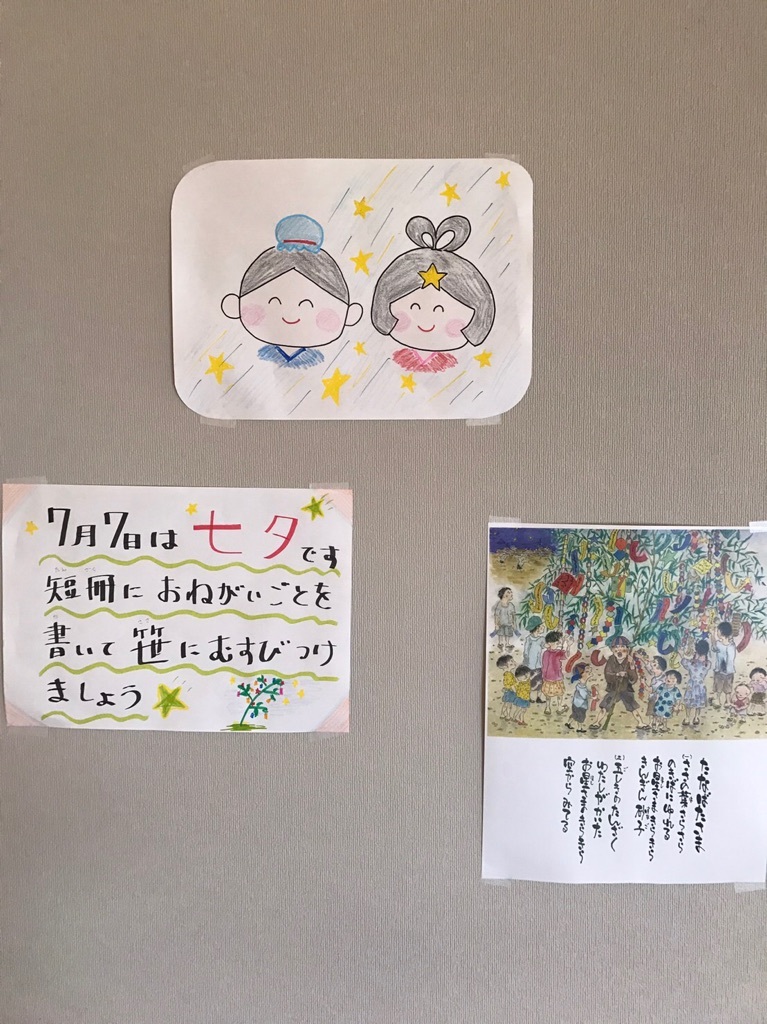 7月7日は七夕です
短冊におねがいごとを
書いて笹にむすびつけ
ましょう
たなばたさま
(一)ささの葉さらさら
のきばにゆれる
お星さまきらきら
きんぎん砂子
(二)五しきのたんざく
わたしがかいた
お星さまきらきら
空から みてる